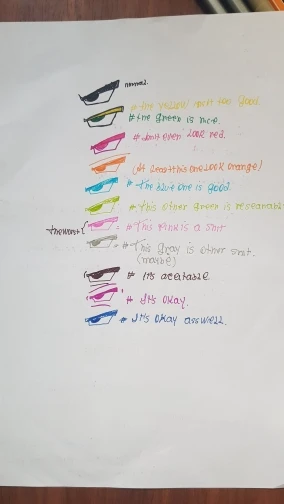 normal.
# the yellow isn't too good
# the green is nice.
# don't even look red.
(At least this one look orange)
# The blue one is good.
# This other green is reseanable
the worst { # This Pink is a shit
# This gray is other shit.
(maybe)
# It's aceitable.
# It's okay.
# It's okay asswell.